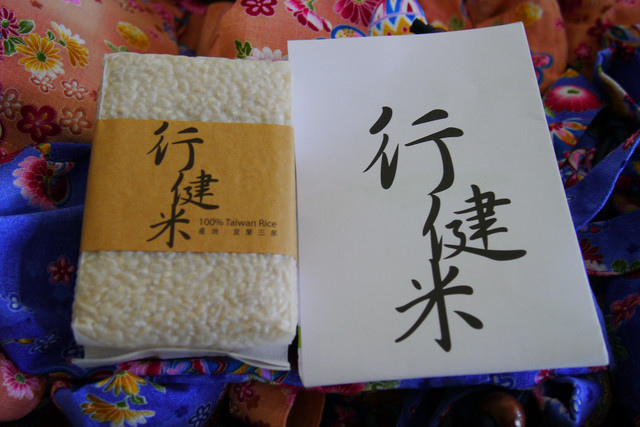 行健米
100% Taiwan Rice
產地 宜蘭三星
行健米